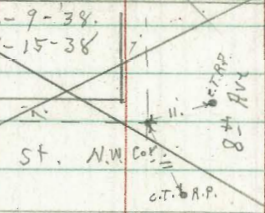 -9-38.
-15-38
7.
11.
C.T.R.P.
8th Ave
7.
St. N.W. Cor.
11
C.T. R.P.